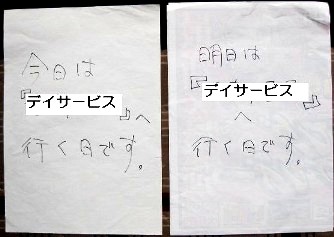 今日は
『デイサービス』へ
行く日です。
明日は
『デイサービス』
へ
行く日です。